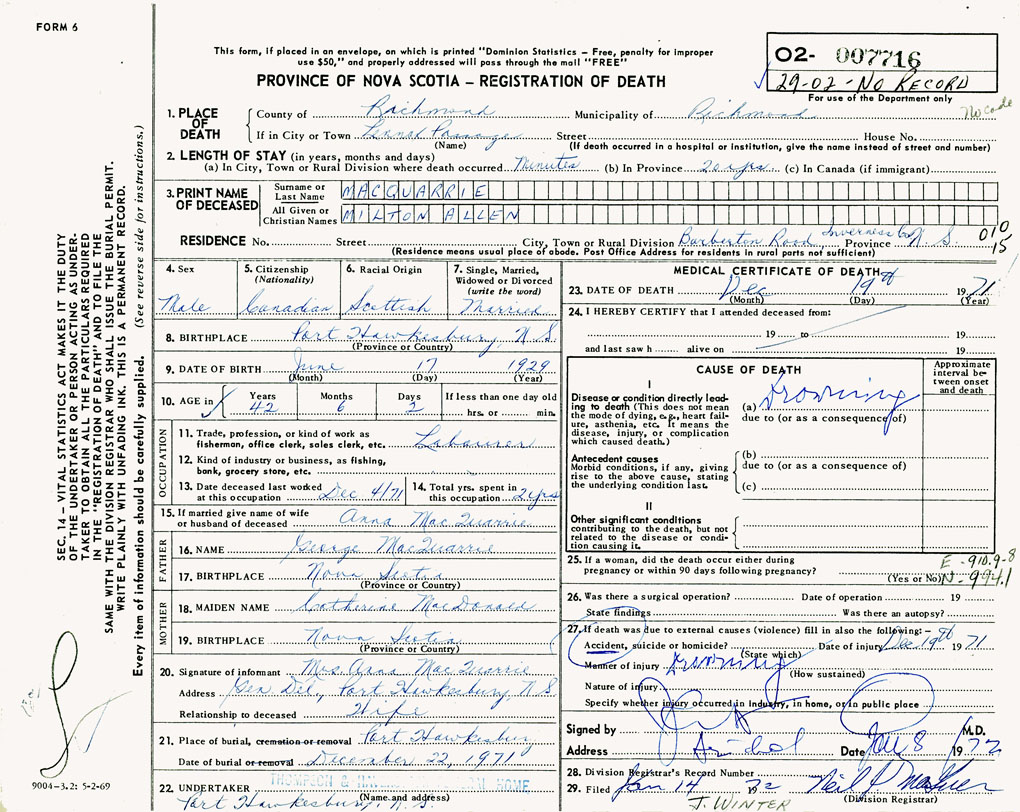 FORM 6
This form, if placed in an envelope, on which is printed "Dominion Statistics – Free, penalty for improper
use $50," and properly addressed will pass through the mail "FREE"
PROVINCE OF NOVA SCOTIA – REGISTRATION OF DEATH
02- 007716
29-02 - NO RECORD
For use of the Department only
No code
1. PLACE OF DEATH
County of Richmond Municipality of Richmond
If in City or Town Lennox Passage Street House No.
(Name) (If death occurred in a hospital or institution, give the name instead of street and number)
2. LENGTH OF STAY (in years, months and days)
(a) In City, Town or Rural Division where death occurred Minutes (b) In Province 20 yrs. (c) In Canada (if immigrant)
3. PRINT NAME OF DECEASED
Surname or Last Name MACQUARRIE
All Given or Christian Names MILTON ALLEN
RESIDENCE No. Street City, Town or Rural Division Barberton Road, Inverness Co Province N.S. 010 15
(Residence means usual place of abode. Post Office Address for residents in rural parts not sufficient)
4. Sex Male
5. Citizenship (Nationality) Canadian
6. Racial Origin Scottish
7. Single, Married, Widowed or Divorced (write the word) Married
8. BIRTHPLACE Port Hawkesbury, N.S.
(Province or Country)
9. DATE OF BIRTH June 17 1929
(Month) (Day) (Year)
10. AGE in Years 42 Months 6 Days 2 If less than one day old hrs. or min.
OCCUPATION
11. Trade, profession, or kind of work as fisherman, office clerk, sales clerk, etc. Labourer
12. Kind of industry or business, as fishing, bank, grocery store, etc.
13. Date deceased last worked at this occupation Dec 4/71
14. Total yrs. spent in this occupation 2 yrs
15. If married give name of wife or husband of deceased Anna MacQuarrie
FATHER
16. NAME George MacQuarrie
17. BIRTHPLACE Nova Scotia
(Province or Country)
MOTHER
18. MAIDEN NAME Catherine MacDonald
19. BIRTHPLACE Nova Scotia
(Province or Country)
20. Signature of informant Mrs. Anna MacQuarrie
Address Gen Del, Port Hawkesbury, N.S
Relationship to deceased Wife
21. Place of burial, cremation or removal Port Hawkesbury
Date of burial or removal December 22, 1971
22. UNDERTAKER THOMPSON & HOME
(Name and address)
Port Hawkesbury, N.S.
MEDICAL CERTIFICATE OF DEATH
23. DATE OF DEATH Dec 19th 1971
(Month) (Day) (Year)
24. I HEREBY CERTIFY that I attended deceased from:
19 to 19
and last saw h alive on 19
CAUSE OF DEATH
Approximate interval between onset and death
I
Disease or condition directly leading to death (This does not mean the mode of dying, e.g., heart failure, asthenia, etc. It means the disease, injury, or complication which caused death.)
(a) Drowning
due to (or as a consequence of)
Antecedent causes
Morbid conditions, if any, giving rise to the above cause, stating the underlying condition last.
(b)
due to (or as a consequence of)
(c)
II
Other significant conditions contributing to the death, but not related to the disease or condition causing it.
25. If a woman, did the death occur either during pregnancy or within 90 days following pregnancy?
(Yes or No)
E-910.9-8
N-994.1
26. Was there a surgical operation? Date of operation 19
State findings Was there an autopsy?
27. If death was due to external causes (violence) fill in also the following:–
Accident, suicide or homicide? Date of injury Dec 19th 1971
(State which)
Manner of injury Drowning
(How sustained)
Nature of injury
Specify whether injury occurred in Industry, in home, or in public place
Signed by M.D.
Address Date Jan 8 1972
28. Division Registrar's Record Number
29. Filed Jan 14 1972
(Division Registrar)
J. WINTER
SEC. 14 – VITAL STATISTICS ACT MAKES IT THE DUTY
OF THE UNDERTAKER OR PERSON ACTING AS UNDER-
TAKER TO OBTAIN ALL THE PARTICULARS REQUIRED
IN THE "REGISTRATION OF DEATH" AND TO FILE THE
SAME WITH THE DIVISION REGISTRAR WHO SHALL ISSUE THE BURIAL PERMIT.
WRITE PLAINLY WITH UNFADING INK. THIS IS A PERMANENT RECORD.
Every item of information should be carefully supplied. (See reverse side for instructions.)
9004–3.2: 5-2-69